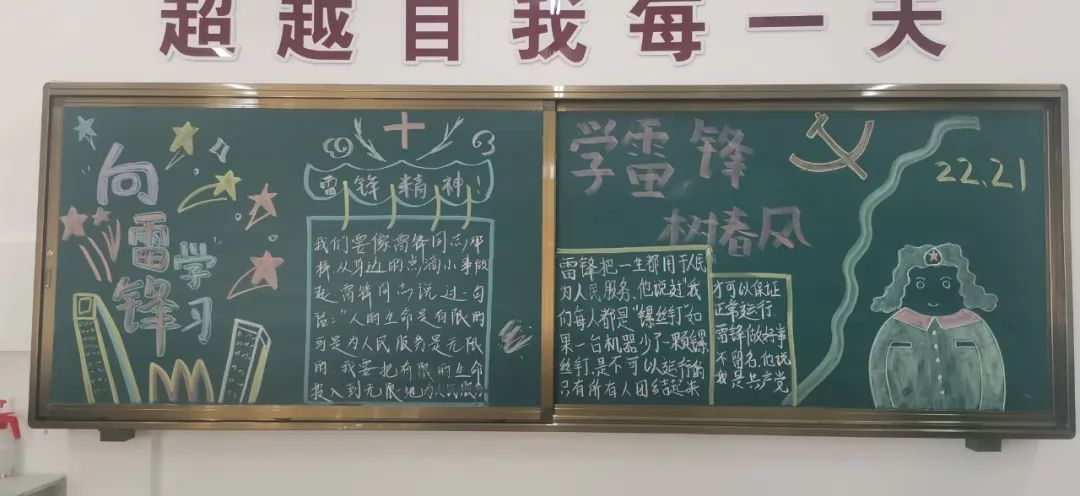 超越自我每一天
向
雷
锋
学
习
雷锋精神！
我们要像雷锋同志一样
样，从身边的点滴小事做
起雷锋同志说过一句
话："人的生命是有限的
可是为人民服务是无限
的，我要把有限的生命
投入到无限地为人民服务
学雷锋
树春风
22.21
雷锋把一生都用于人民
为人民服务、他说过"我
们每人都是"螺丝钉如
果一台机器少了一颗螺
丝钉是不可以运行的
只有所有人团结起来
才可以保证
正常运行
雷锋做好事
不留名、他说
我是共产党